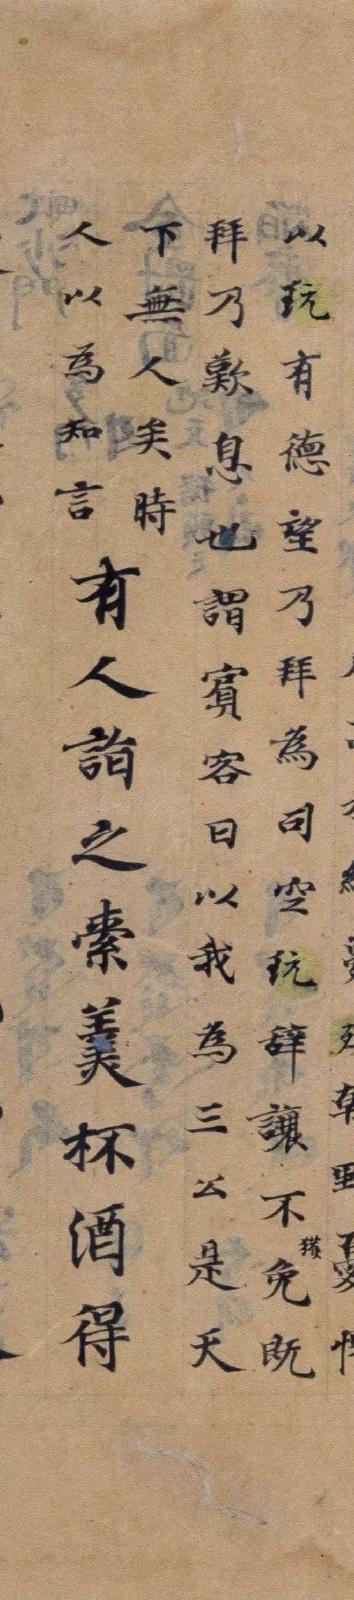 以玩有德望乃拜為司空玩辭讓不獲免既
拜乃歎息也謂賓客曰以我為三公是天
下無人矣時
人以為知言
有人詣之索美杯酒得